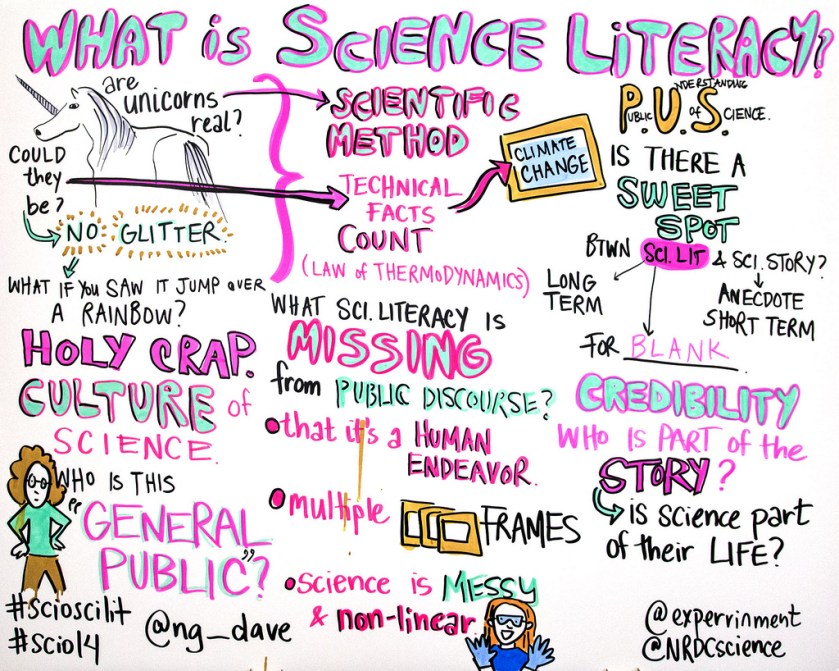 WHAT is SCIENCE LITERACY?
are
unicorns
real?
COULD
they
be?
NO GLITTER.
WHAT IF YOU SAW IT JUMP OVER
A RAINBOW?
HOLY CRAP.
CULTURE of
SCIENCE.
WHO IS THIS
"GENERAL
PUBLIC"?
#scioscilit
#scio14
@ng_dave
SCIENTIFIC
METHOD
TECHNICAL
FACTS
COUNT
(LAW of THERMODYNAMICS)
CLIMATE
CHANGE
WHAT SCI. LITERACY IS
MISSING
from PUBLIC DISCOURSE?
that it's a HUMAN
ENDEAVOR.
multiple FRAMES
science is MESSY
& non-linear
PUBLIC UNDERSTANDING of SCIENCE.
IS THERE A
SWEET
SPOT
BTWN SCI. LIT & SCI. STORY?
LONG
TERM
ANECDOTE
SHORT TERM
FOR BLANK
CREDIBILITY
WHO IS PART of the
STORY?
is science part
of their LIFE?
@experrinment
@NRDCscience